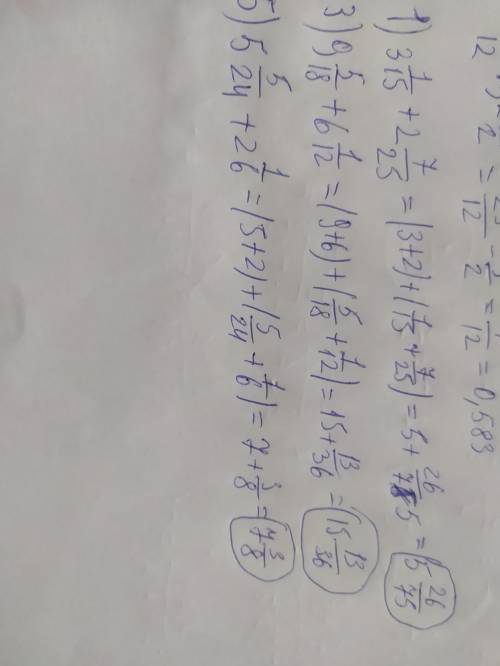 12 = 12 - 2 = 12 = 0,583
1) 3 1/15 + 2 7/25 = (3+2)+(1/15 + 7/25) = 5 + 26/75 = 5 26/75
3) 9 5/18 + 6 1/12 = (9+6)+(5/18 + 1/12) = 15 + 13/36 = 15 13/36
5) 5 5/24 + 2 1/6 = (5+2)+(5/24 + 1/6) = 7 + 3/8 = 7 3/8